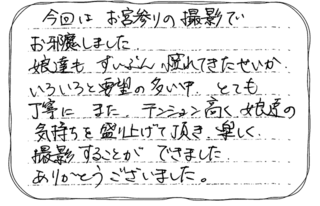 今回は お宮参りの撮影で
お邪魔しました
娘達も ずいぶん 慣れてきたせいか
いろいろと要望の多い中、とても
丁寧に また、テンション高く 娘達の
気持ちを盛り上げて頂き 楽しく
撮影することが できました
ありがとうございました。